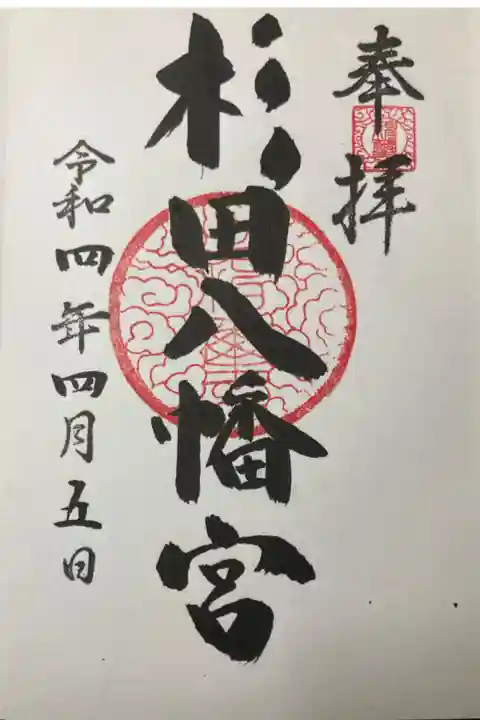 奉拝
杉田八幡宮
令和四年四月五日